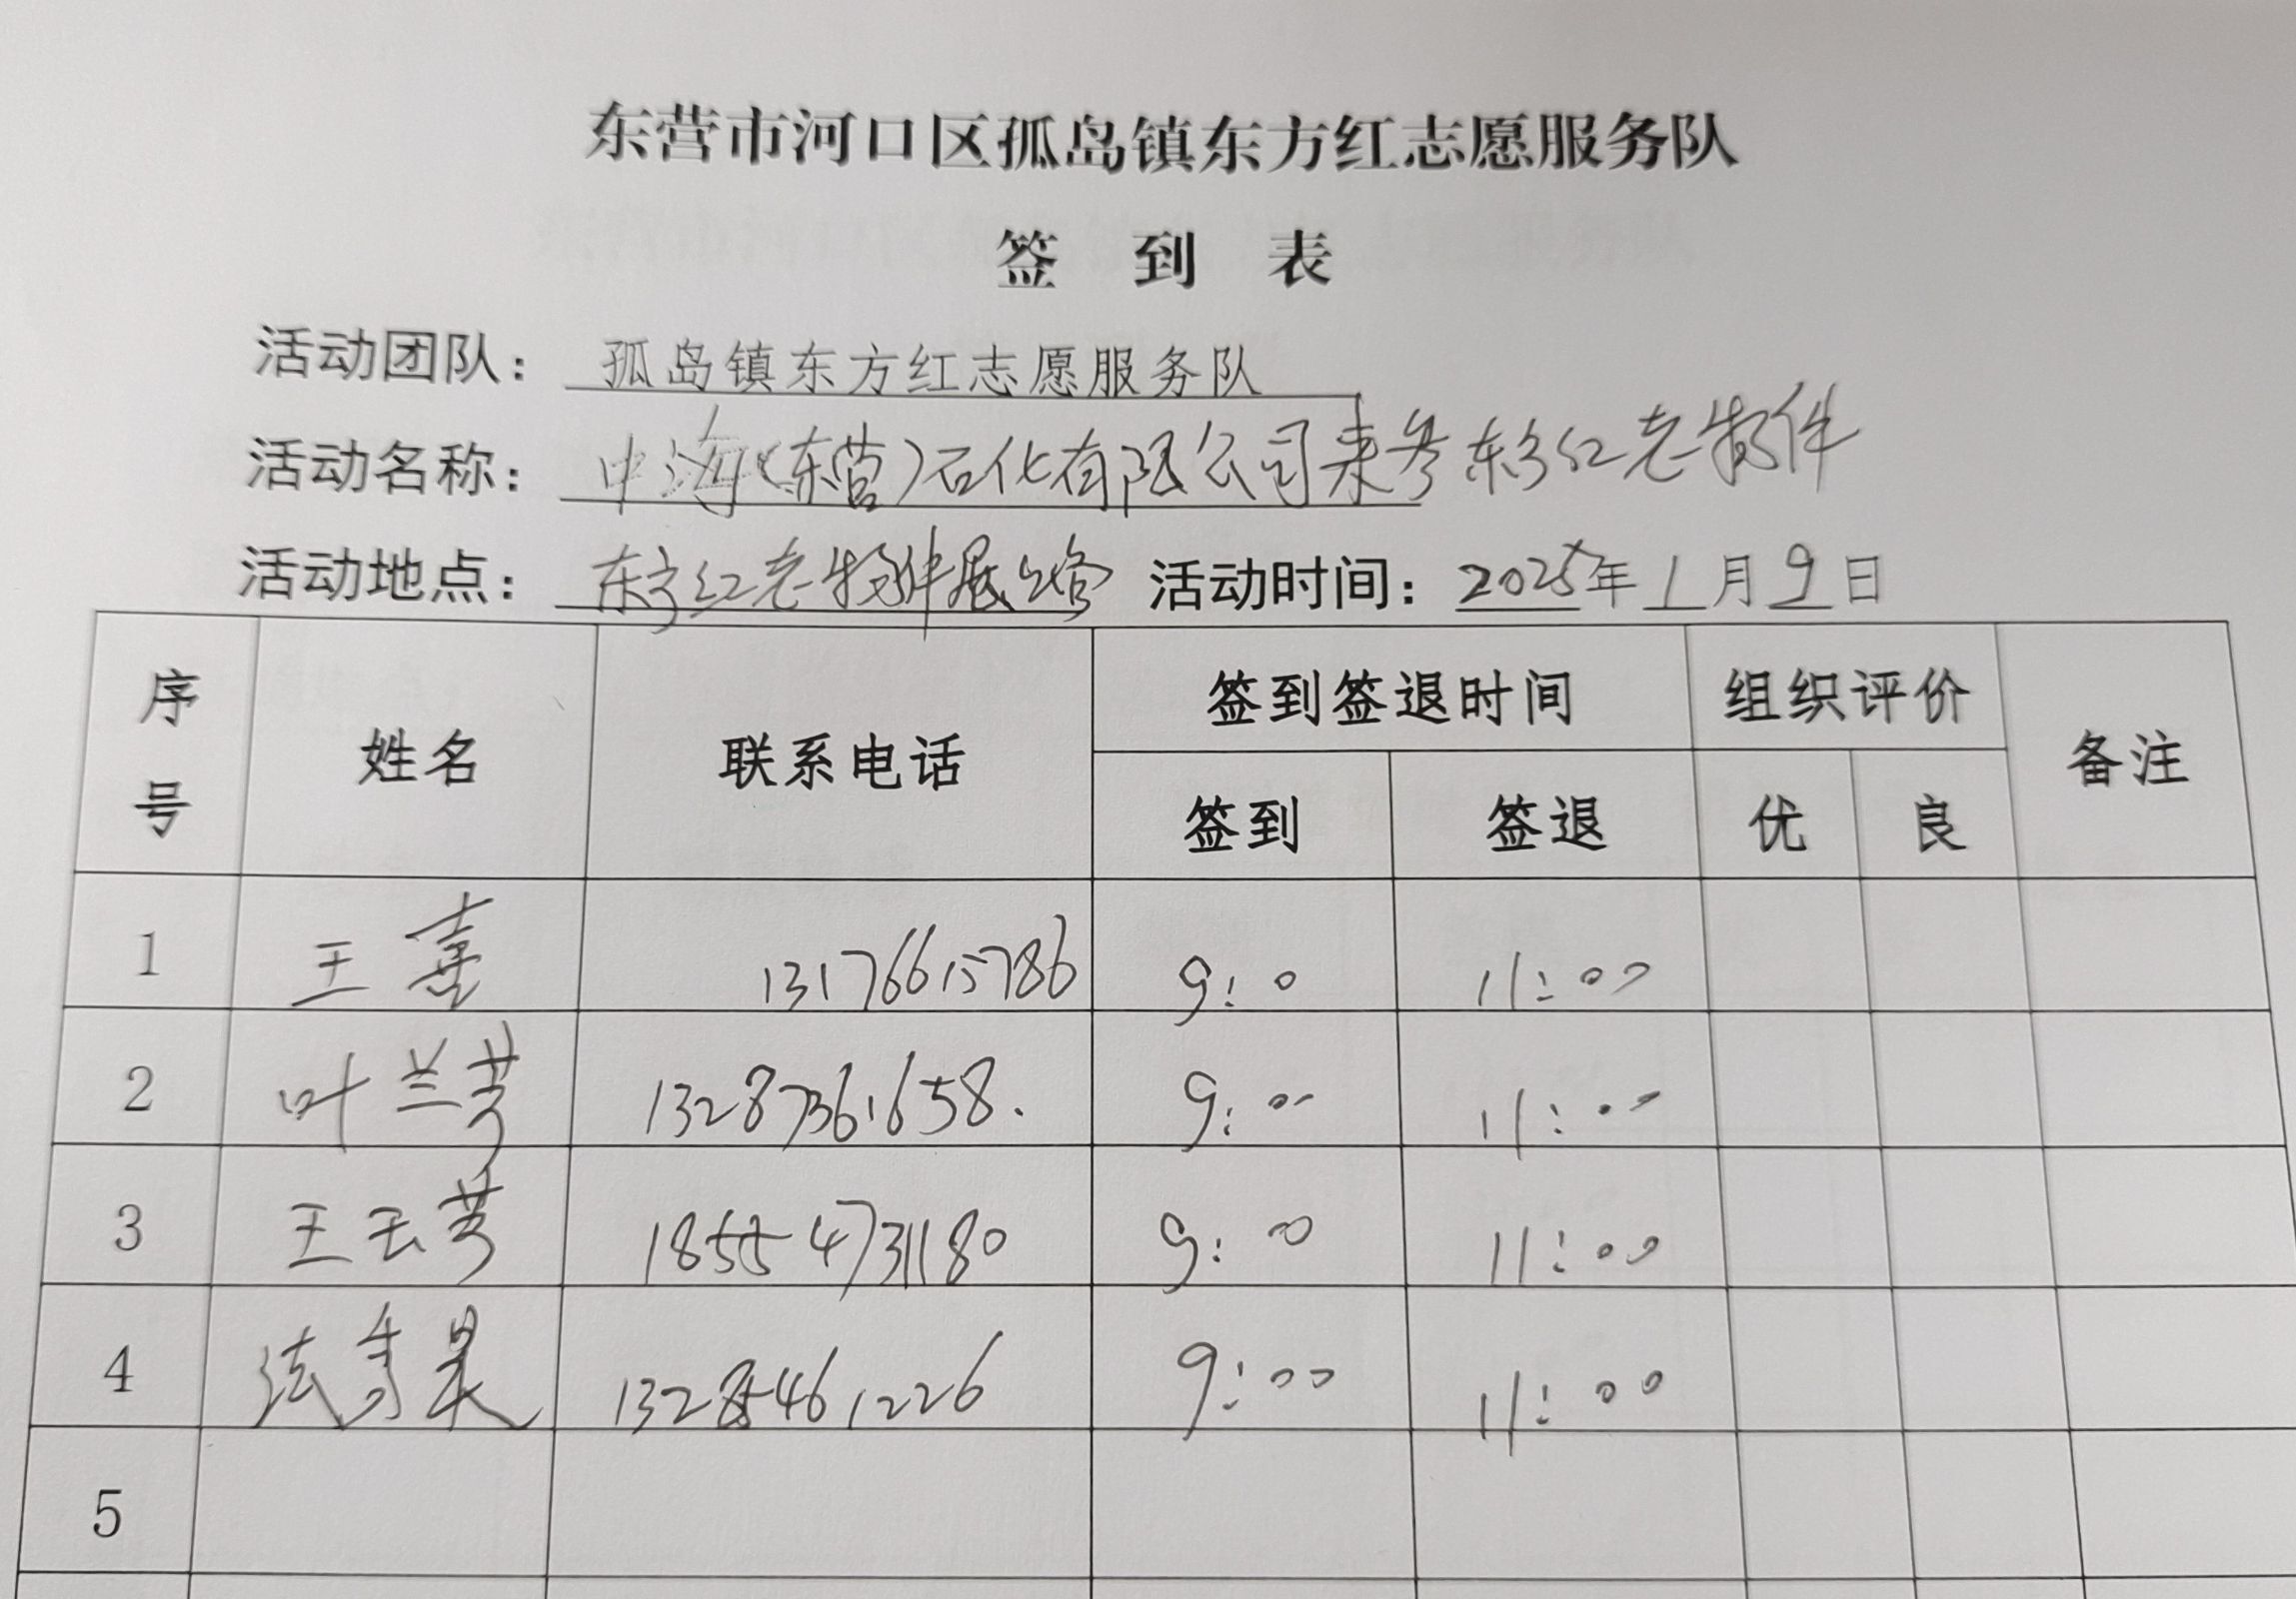 东营市河口区孤岛镇东方红志愿服务队
签 到 表
活动团队：孤岛镇东方红志愿服务队
活动名称：中海（东营）石化有限公司来参东方红老物件
活动地点：东方红老物件展览馆 活动时间：2025年1月9日
序号 姓名 联系电话 签到签退时间 组织评价 备注
签到 签退 优 良
1 王喜 13176615786 9:0 11:00
2 叶兰芳 13287361658. 9:00 11:00
3 王玉芳 18554731180 9:00 11:00
4 13285461226 9:00 11:00
5